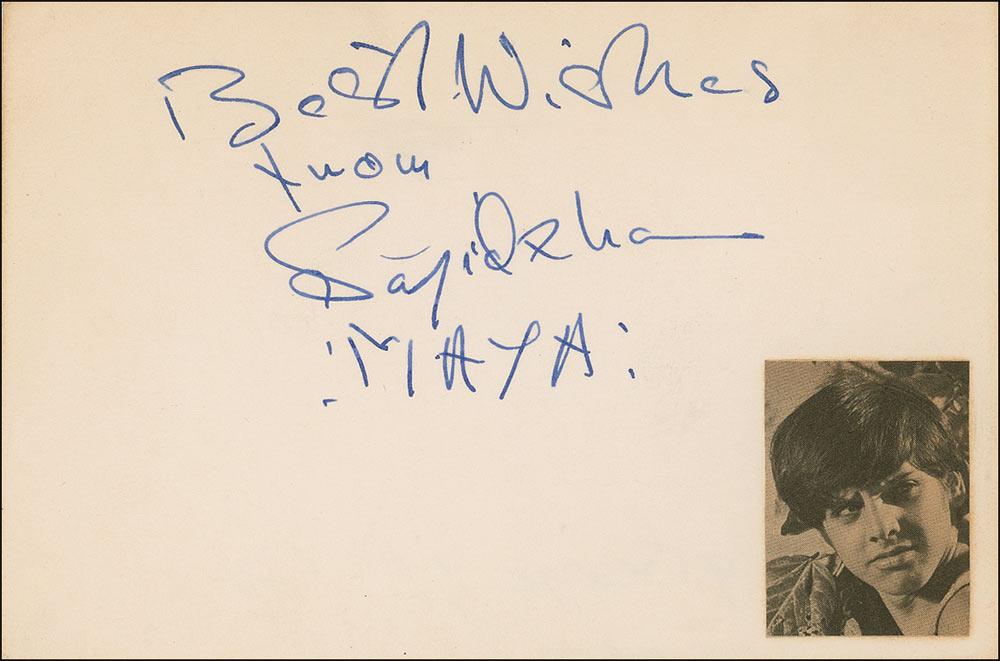 Best Wishes
from
Sajid Khan
"MAYA"